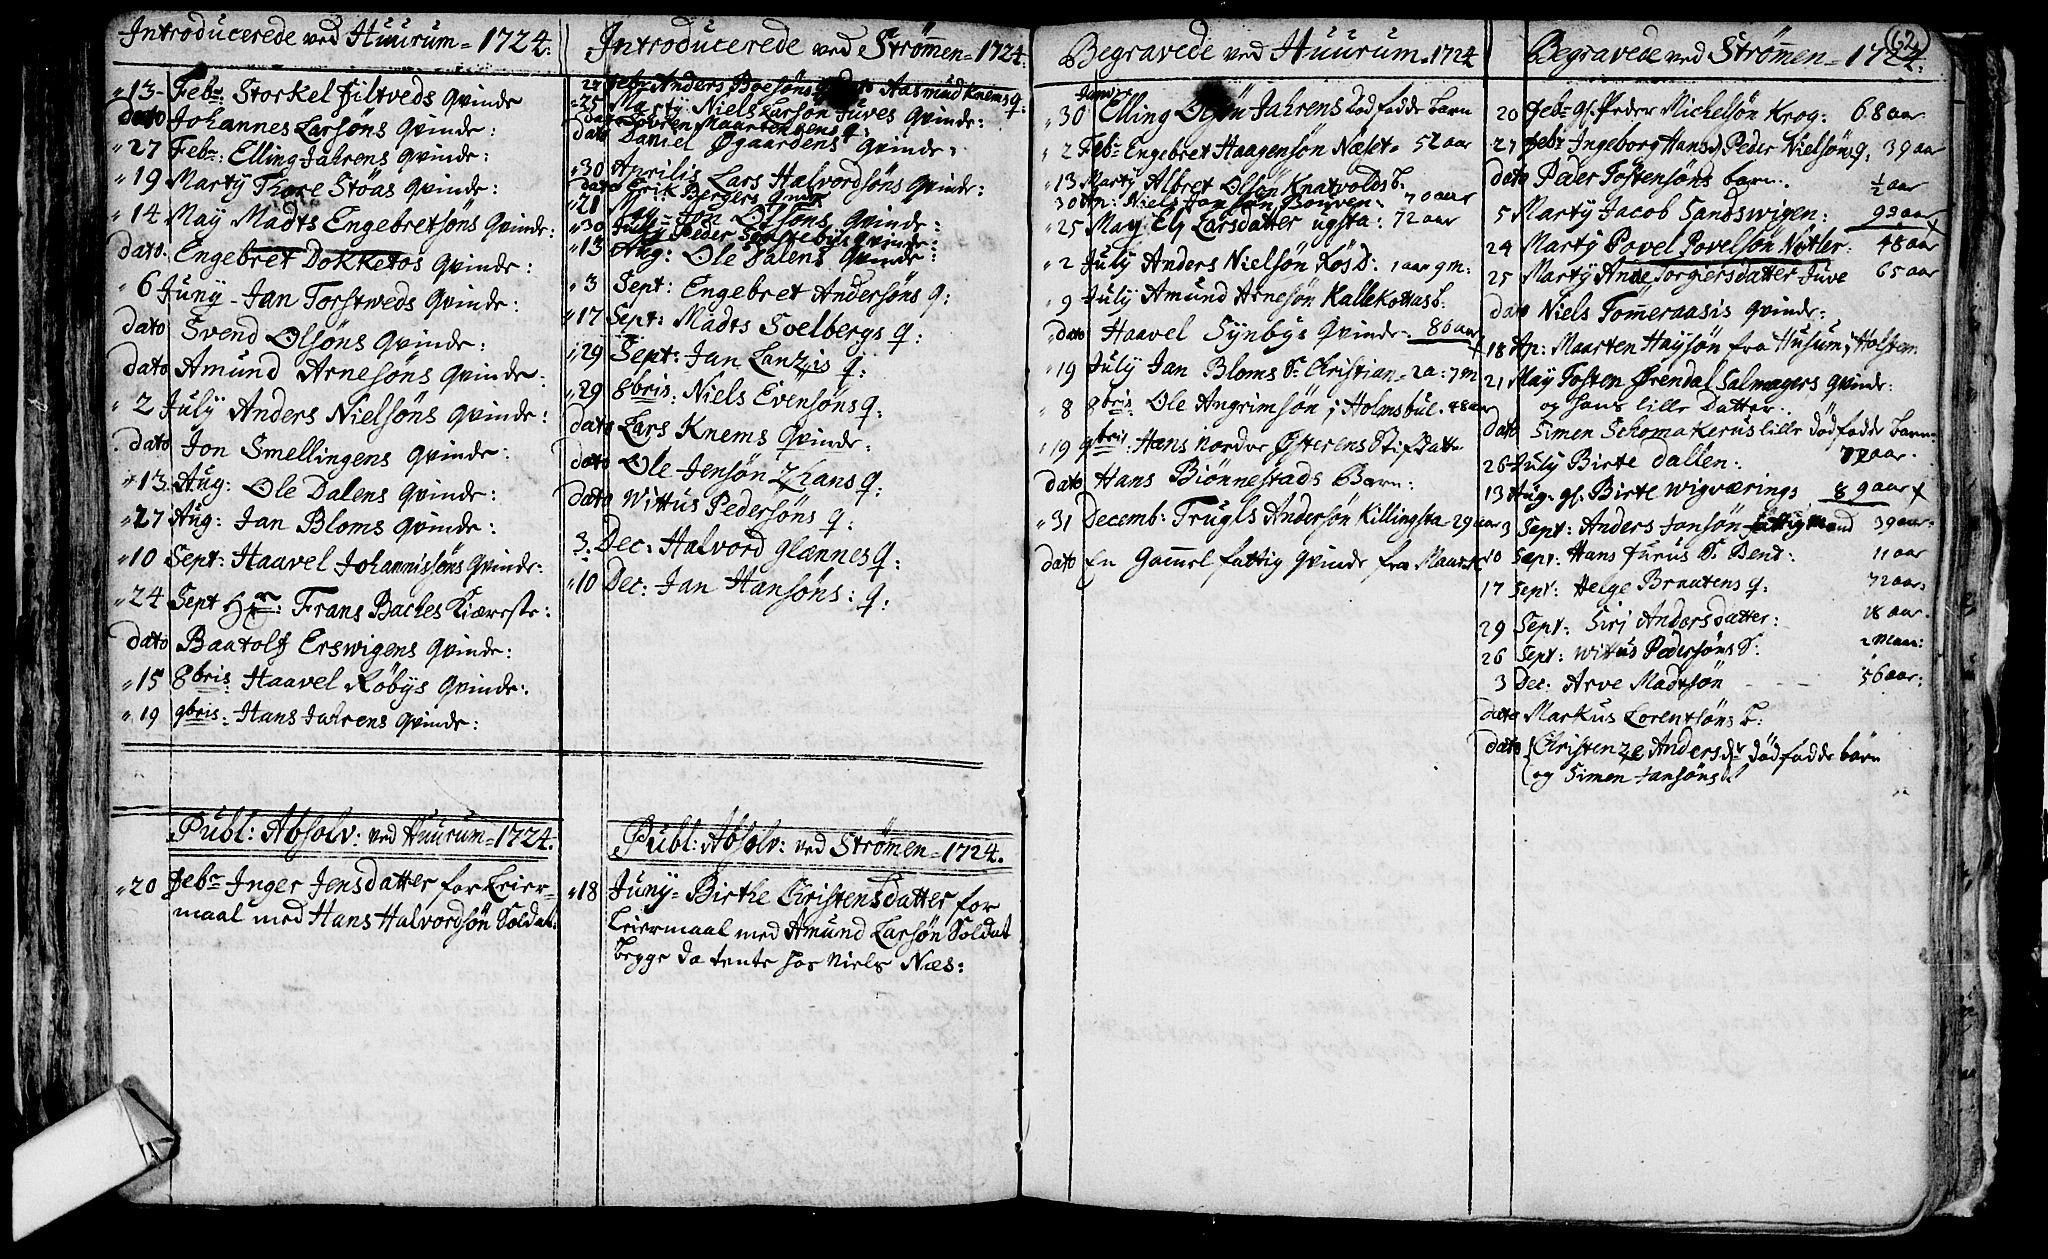 Introducerede ved Hüürum = 1724.
"13 - Febr: Storkel Filtveds Qvinde
dato Johannes Larsöns Qvinde:
"27 Febr: Elling Jahrens Qvinde:
"19 Marty Thore Stöas Qvinde:
"14 May Madts Engebretsöns Qvinde:
dato. Engebret Dokketos Qvinde:
"6 Juny - Jan Torstweds Qvinde:
dato Svend Olsöns Qvinde:
dato Amund Arnesöns Qvinde:
"2 July Anders Nielsöns Qvinde:
dato Jon Smellingens Qvinde:
"13. Aug: Ole Dalens Qvinde:
"27 Aug: Jan Bloms Qvinde:
"10 Sept: Haavel Johannissöns Qvinde:
"24 Sept Hr: Frans Baches Kiæreste:
dato Baatolf Erswigens Qvinde:
"15 8bris: Haavel Röbys Qvinde:
"19 9bris: Hans Jahrens Qvinde:
Publ: Absolv: ved Hüürum = 1724.
"20 Febr Inger Jensdatter for Leier=
maal med Hans Halvordsön Soldat:
Introducerede ved Strömen = 1724.
27 Febr Anders Boesöns Aasmund Knems Q:
"25 Marty: Niels Larsön Juves Qvinde:
dato Sören Maartensens q:
dato Daniel Øgaardens Qvinde:
"30 Aprilis Lars Halvordsöns Qvinde:
dato Erik Bergers Qvinde
"21 May - Jon Olsöns Qvinde:
"30 July Peder Qvinde:
"13 Aug: Ole Dalens Qvinde:
"3 Sept: Engebret Andersöns q:
"17 Sept: Madts Svelbergs q:
"29 Sept: Jan Lanzis q:
"29 8bris: Niels Evensöns q:
dato Lars Knems Qvinde:
dato Ole Jensön Lhans q:
dato Wittus Pedersöns q:
3. Dec: Halvord Glænnes q:
"10 Dec: Jan Hansöns: q:
Publ: Absolv: ved Strömen = 1724.
"18 Juny = Birthe Christensdatter for
Leiermaal med Amund Larsön Soldat
begge da tente hos Niels Næs:
Begravede ved Hüürum = 1724
"30 Janur: Elling Olsön Jahrens Dödfödde barn
"2 Febr Engebret Haagensön Næset = 52 aar
"13 Marty Albret Olsön Knatvolds b.
30 Ap: Niels Jansön Bouven: 70 aar
"25 May Els Larsdatter ugsta: 72 aar
"2 July Anders Nielsön Kös D: 1 aar 9 m:
"9 July Amund Arnesön Kallekottas b.
dato Haavel Synbys Qvinde: 86 aar
"19 July Jan Bloms S. Christian = 2 a: 7 m
"8 8bris: Ole Angrimsön i Holmsbul. 48 aar
"19 9bris: Hans Nordre Østerens Stifdatt
dato Hans Biönnestads Barn:
"31 Decemb: Trugls Andersön Killingsta = 29 aar
dato En Gamel fattig Qvinde fra
62
Begravede ved Strömen = 1724.
20 Febr gl. Peder Michelsön Krog: 68 aar
27 Febr Ingeborg Hansd. Peder Nielsöns q: 39 aar
dato Peder Tostensöns barn: ½ aar
5 Marty Jacob Sandswigen: 93 aar
24 Marty Povel Povelsön Nøtler. 48 aar
25 Marty Anne Torgiersdatter Juve 65 aar
dato Niels Tomeraasis Qvinde:
18 Ap: Maarten Haysön fra Husum i Holsten
21 May Tosten Ørendal Salmagers Qvinde:
og hans lille Datter:
dato Simen Schomakerus lille dödfödde barn:
26 July Birte Dallen: 72 aar.
13 Aug: gl. Birte Wigværings 89 aar
3 Sept: Anders Jonsön fattig Mand 39 aar:
10 Sept: Hans Furus S. Bent: 11 aar
17 Sept: Helge Brautens q: 72 aar:
29 Sept: Siri Andersdatter: 28 aar.
26 Sept: Wittus Pedersöns S: 2 Maan:
3 Dec: Arve Madtsön - - - 56 aar:
dato Markus Lorentsöns b:
dato Christenze Andersdr dödfödde börn
og Simen Jansöns